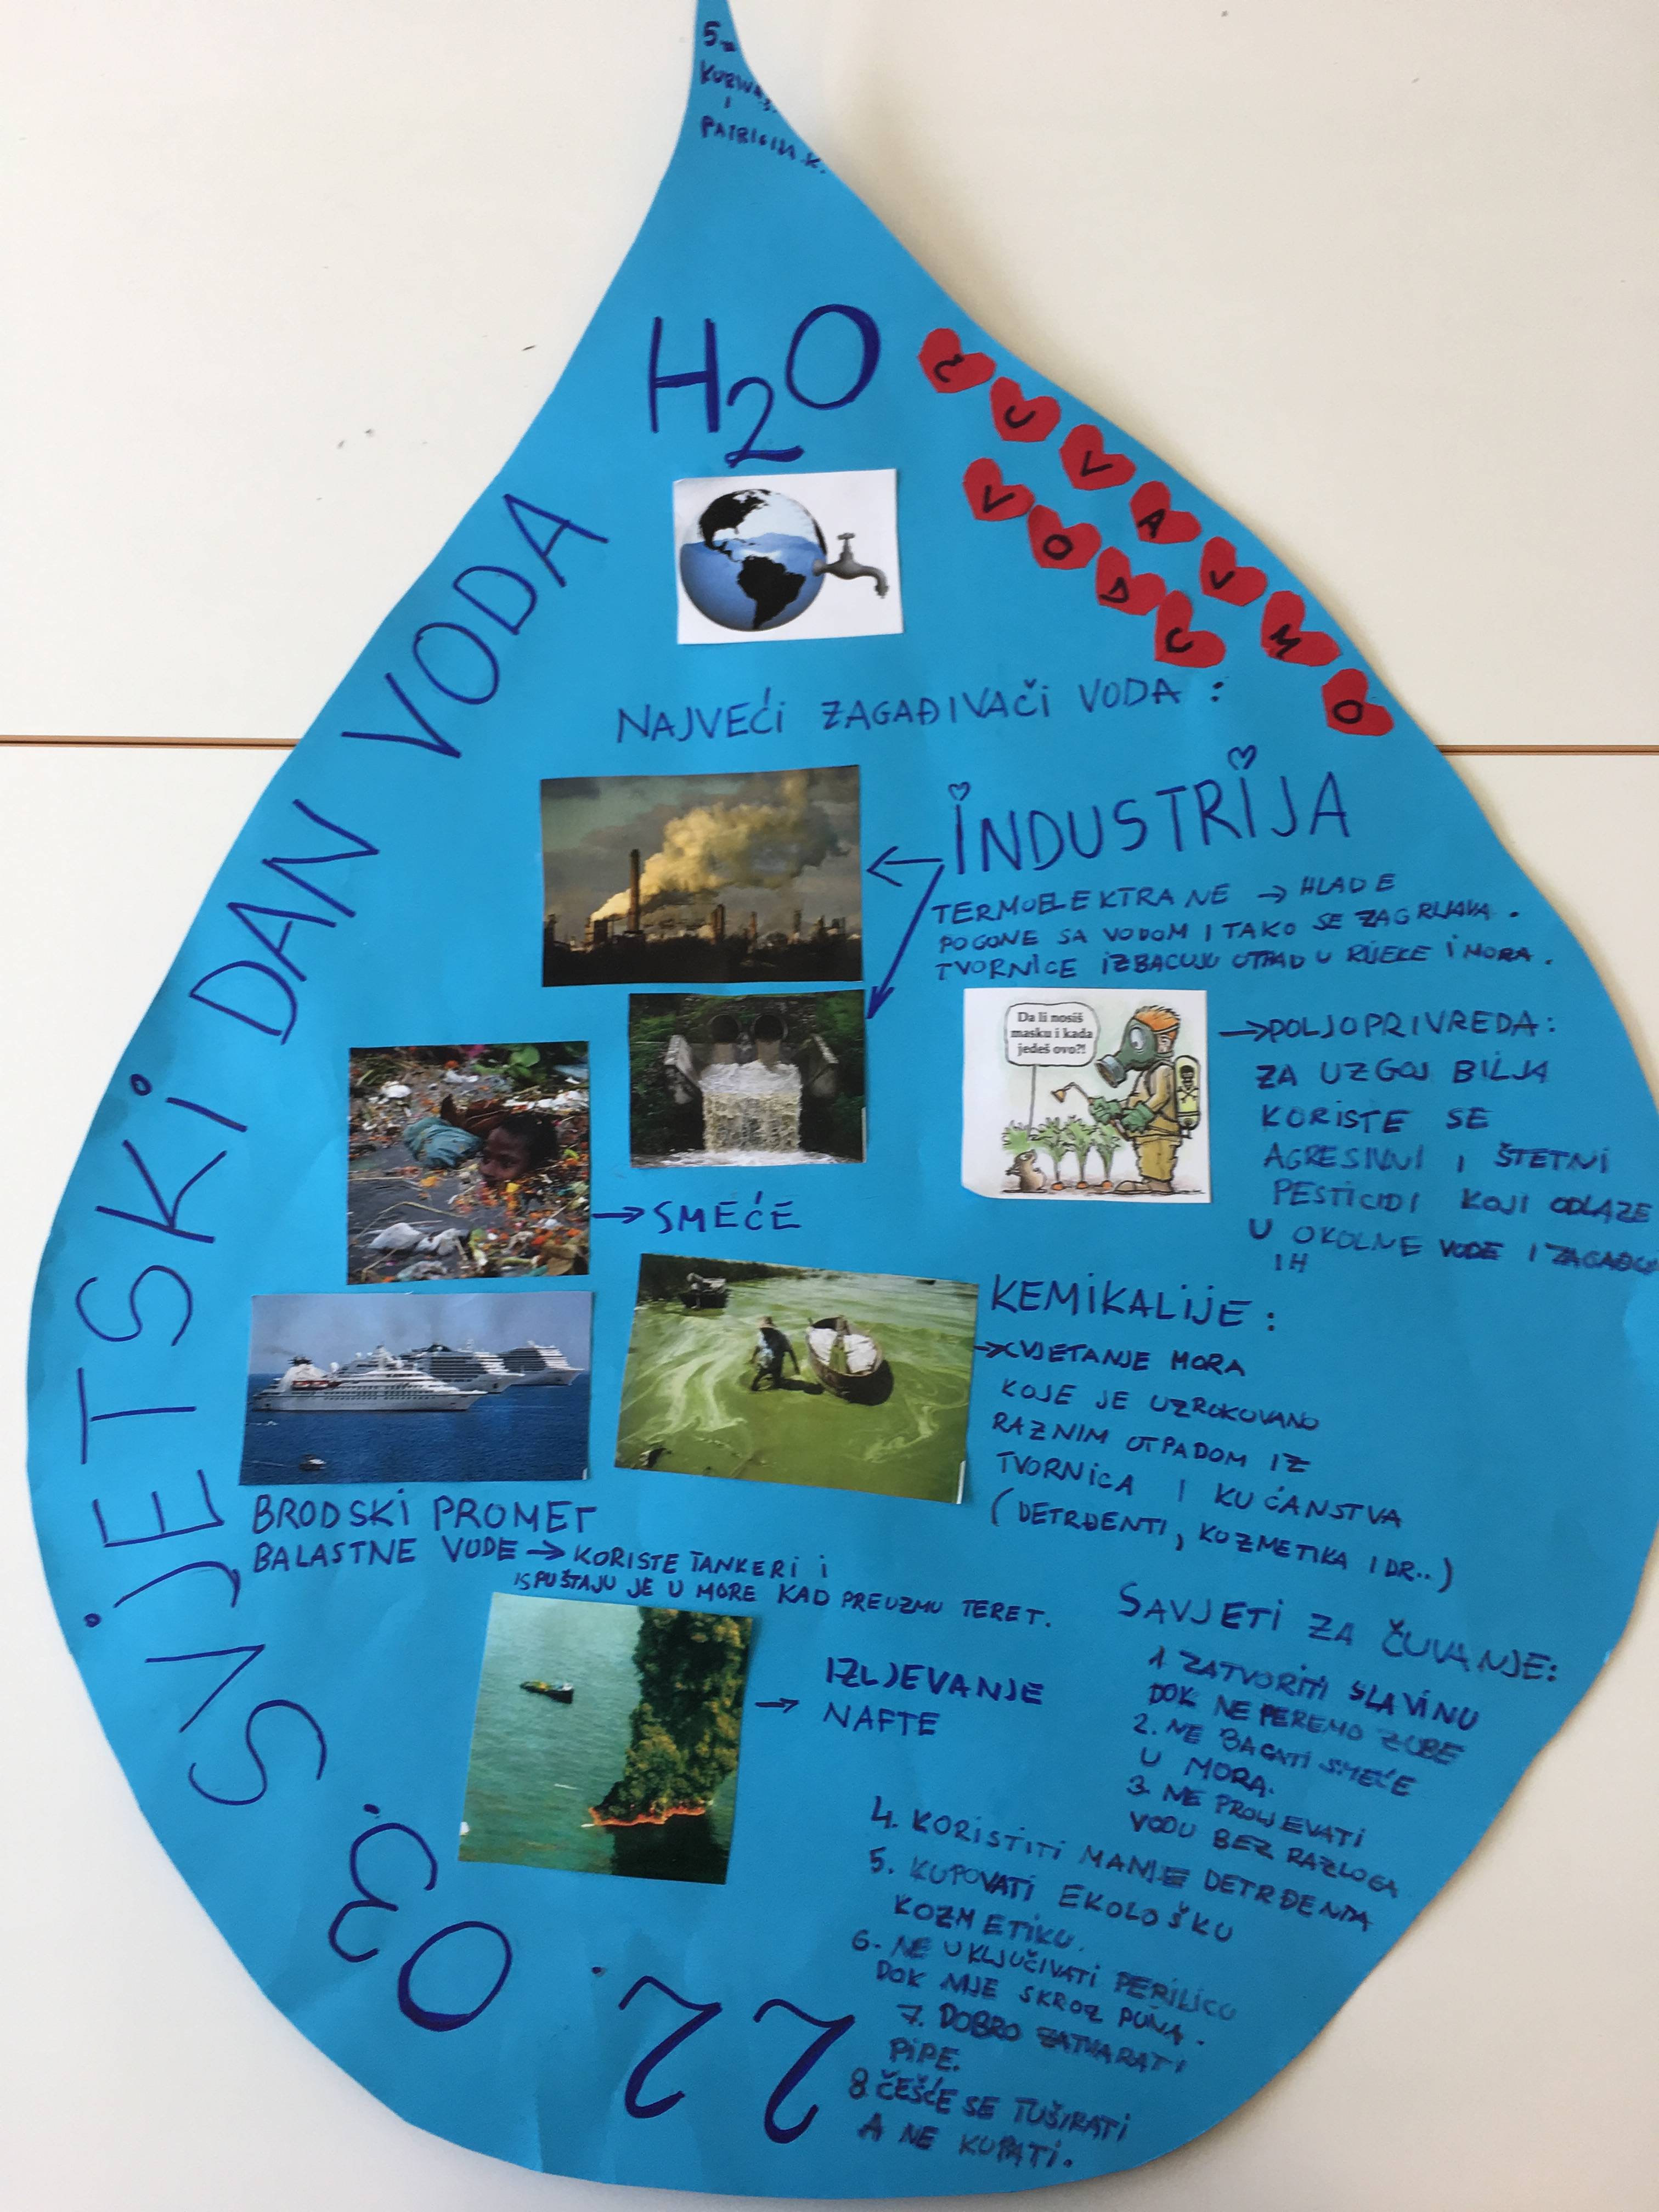 5.
I
PATRICIJA K.
H2O
ČUVAJMO
VODU
SVJETSKI DAN VODA
22. 03.
NAJVEĆI ZAGAĐIVAČI VODA :
INDUSTRIJA
TERMOELEKTRANE → HLADE
POGONE SA VODOM I TAKO SE ZAGRIJAVA.
TVORNICE IZBACUJU OTPAD U RIJEKE I MORA.
Da li nosiš
masku i kada
jedeš ovo?!
→POLJOPRIVREDA:
ZA UZGOJ BILJA
KORISTE SE
AGRESIVNI I ŠTETNI
PESTICIDI KOJI ODLAZE
U OKOLNE VODE I ZAGAĐUJU
IH
→ SMEĆE
KEMIKALIJE :
→CVJETANJE MORA
KOJE JE UZROKOVANO
RAZNIM OTPADOM IZ
TVORNICA I KUĆANSTVA
(DETRĐENTI, KOZMETIKA I DR..)
BRODSKI PROMET
BALASTNE VODE → KORISTE TANKERI I
ISPUŠTAJU JE U MORE KAD PREUZMU TERET.
→ IZLJEVANJE
NAFTE
SAVJETI ZA ČUVANJE:
1. ZATVORITI SLAVINU
DOK NE PEREMO ZUBE
2. NE BACATI SMEĆE
U MORA.
3. NE PROLJEVATI
VODU BEZ RAZLOGA
4. KORISTITI MANJE DETRĐENTA
5. KUPOVATI EKOLOŠKU
KOZMETIKU.
6. NE UKLJUČIVATI PERILICU
DOK NIJE SKROZ PUNA.
7. DOBRO ZATVARATI
PIPE.
8. ČEŠĆE SE TUŠIRATI
A NE KUPATI.